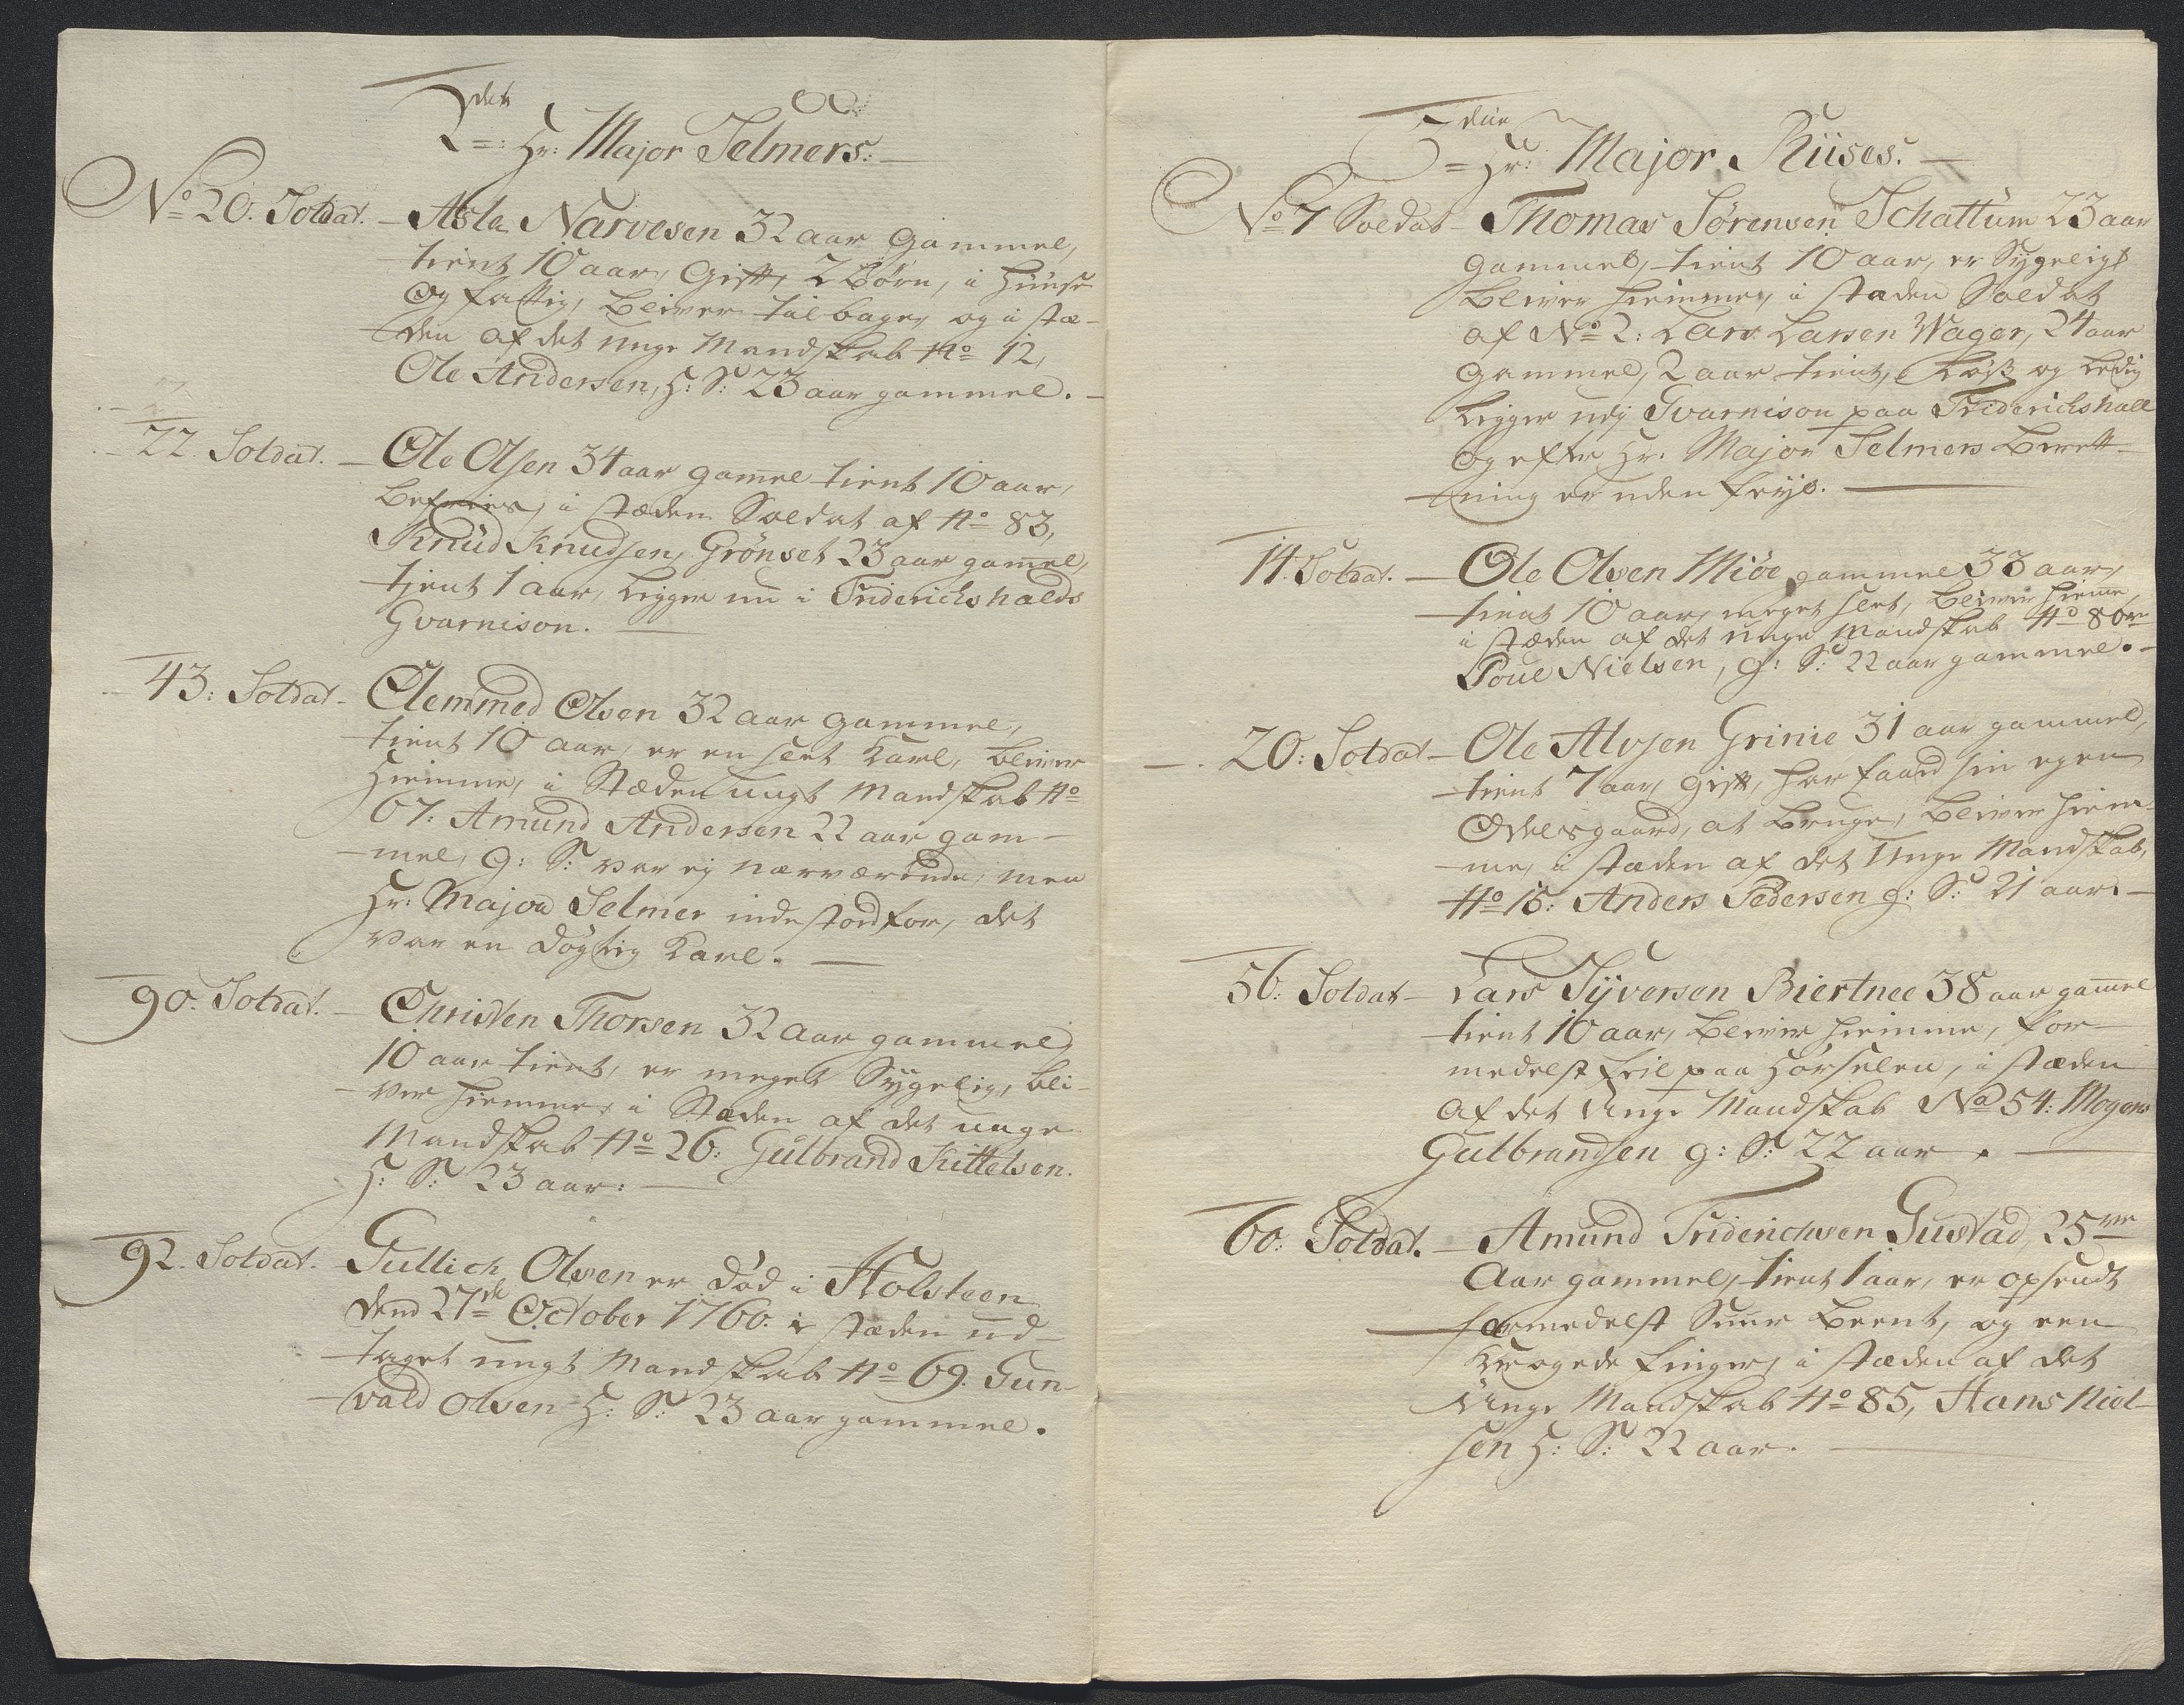 2den Hr: Major Selmers:
No 20. Soldat. Asle Narvesen 32 aar gammel,
tient 10 aar, Gift, 2 børn, i Huuse
og fattig, bliver tilbage, og i stæ-
den af det unge Mandskab No 12,
Ole Andersen, H: S: 23 aar gammel.
22 Soldat. Ole Olsen 34 aar gamel tient 10 aar,
befries, i stæden Soldat af No 83,
Knud Knudsen Grønset 23 aar gamel,
tient 1 aar, ligger nu i Friderichshalds
Gvarnison.
43: Soldat Clemmed Olsen 32 aar gammel,
tient 10 aar, er en slet Karl, bliver
Hiemme, i Stæden ungt Mandskab No
67: Amund Andersen 22 aar gam-
mel, g: S: var ej nærværende, men
Hr: Major Selmer indestod for, det
var en døgtig Karl.
90. Soldat. Christen Thorsen 32 aar gammel,
10 aar tient, er meget Sygelig, bli-
ver hiemme, i Stæden af det unge
Mandskab No 26: Gulbrand Kittelsen.
H: S: 23 aar.
92. Soldat. Gullich Olsen er død i Holsteen
dend 27de October 1760. i stæden ud-
taget ungt Mandskab No 69. Gun-
vald Olsen H: S: 23 aar gammel.
5tine Hr: Major Riises.
No 7 Soldat Thomas Sørensen Schattum 23 aar
gammel, tient 10 aar, er Sygeligt
bliver hiemme, i stæden Soldat
af No 2: Lars Larsen Wager, 24 aar
gammel, 2 aar tient, Løß og ledig
ligger udj Gvarnison paa Friderichshall
og efter Hr. Major Selmers beret-
ning er uden feyl.
14. Soldat. Ole Olsen Miøe gammel 33 aar,
tient 10 aar, meget slet, bliver hieme,
i stæden af det unge Mandskab No 80ve
Poul Nielsen, g: S: 22 aar gammel.
20: Soldat Ole Alvsen Grinie 31 aar gammel,
tient 7 aar, gift, har faaed sin egen
Odelsgaard, at bruge, bliver hiem-
me, i stæden af det Unge Mandskab,
No 15: Anders Pedersen g: S: 21 aar.
56: Soldat Lars Syversen Biertnee 38 aar gamel
tient 10 aar, bliver hiemme, for-
medelst feil paa Hørselen, i stæden
af det Unge Mandskab No 54: Mogens
Gulbrandsen g: S: 22 aar.
60: Soldat. Amund Friderichsen Gustad, 25ve
Aar gammel, tient 1 aar, er opsendt
formedelst Suur Beent, og een
Krogede finger, i stæden af det
Unge Mandskab No 85, Hans Niel-
sen H: S: 22 aar.